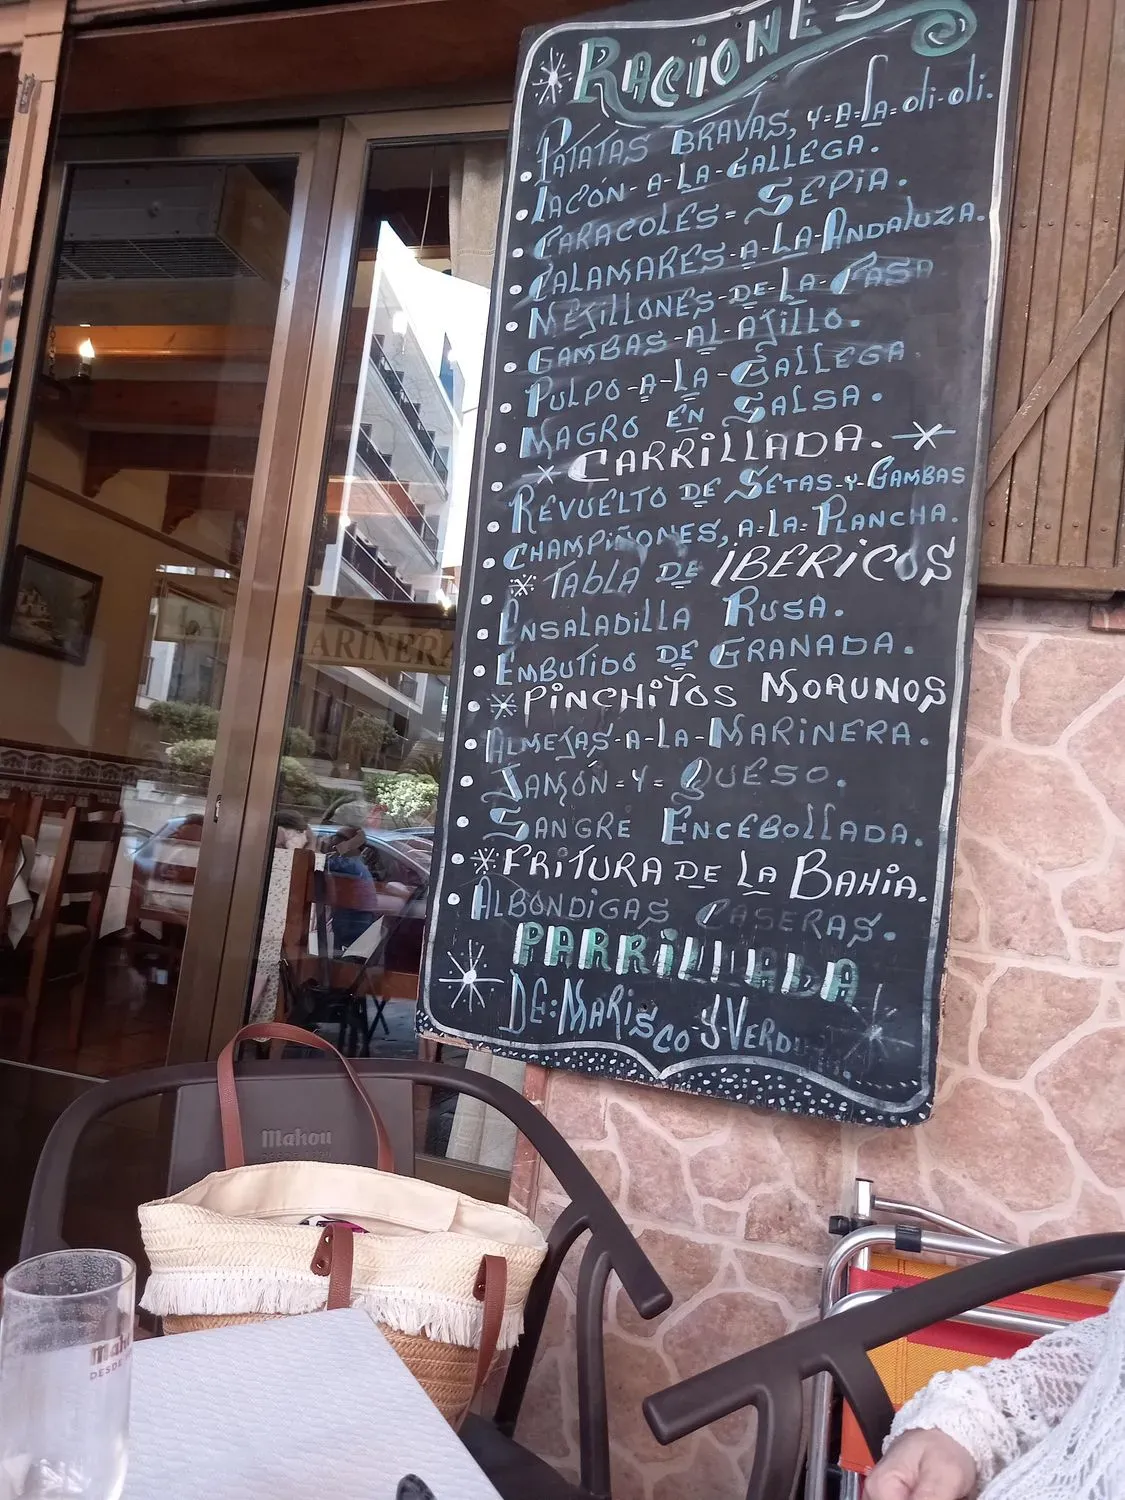 RACIONES
PATATAS BRAVAS, Y=A=LA=oli-oli.
LACÓN-A-LA-GALLEGA.
CARACOLES= SEPIA.
CALAMARES-A-LA-ANDALUZA.
MEJILLONES-DE-LA-CASA
GAMBAS-AL-AJILLO.
PULPO-A-LA-GALLEGA.
MAGRO EN SALSA.
CARRILLADA.
REVUELTO DE SETAS-Y-GAMBAS
CHAMPIÑONES, A-LA-PLANCHA.
TABLA DE IBERICOS
ENSALADILLA RUSA.
EMBUTIDO DE GRANADA.
PINCHITOS MORUNOS
ALMEJAS-A-LA-MARINERA.
JAMÓN=Y=QUESO.
SANGRE ENCEBOLLADA.
FRITURA DE LA BAHIA.
ALBONDIGAS CASERAS.
PARRILLADA
DE:MARISCO-Y-VERD
ARINERA
Mahou
Mah
DESDE